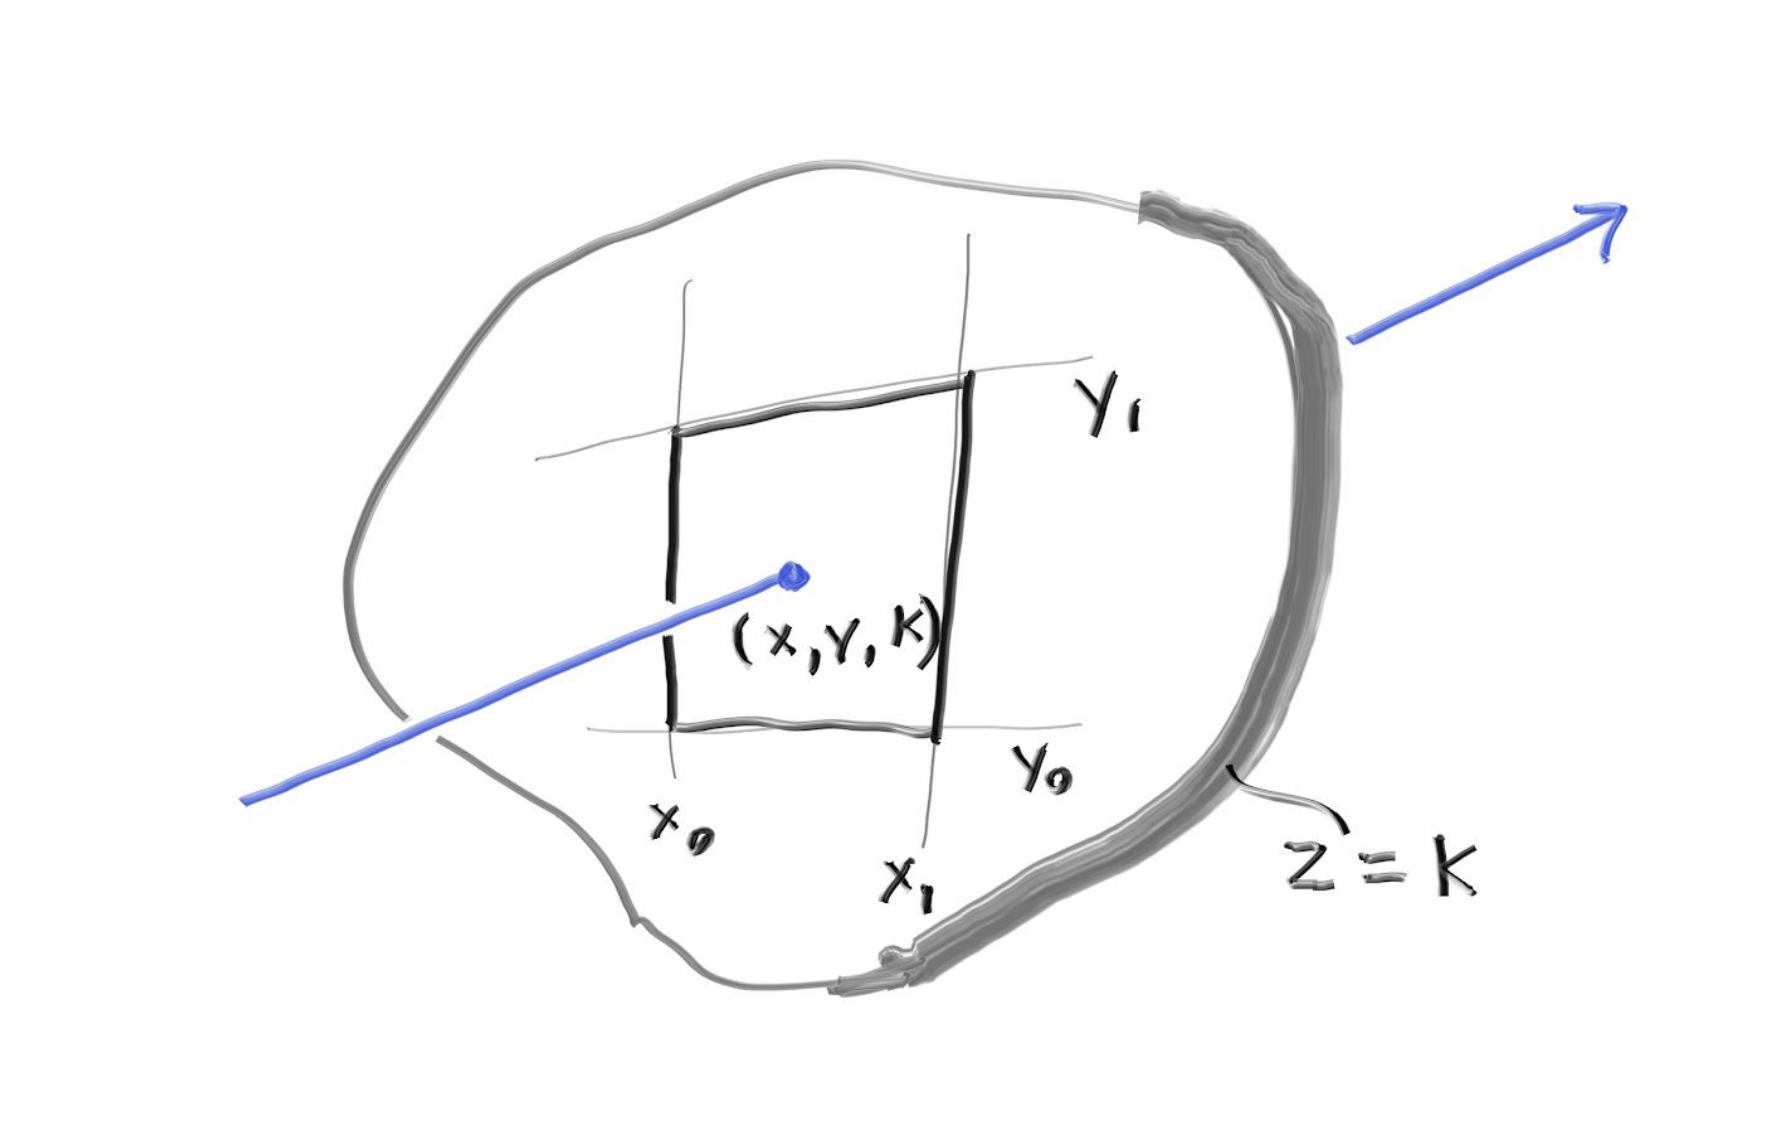 y₁
(x, y, k)
y₀
x₀
x₁
z = k